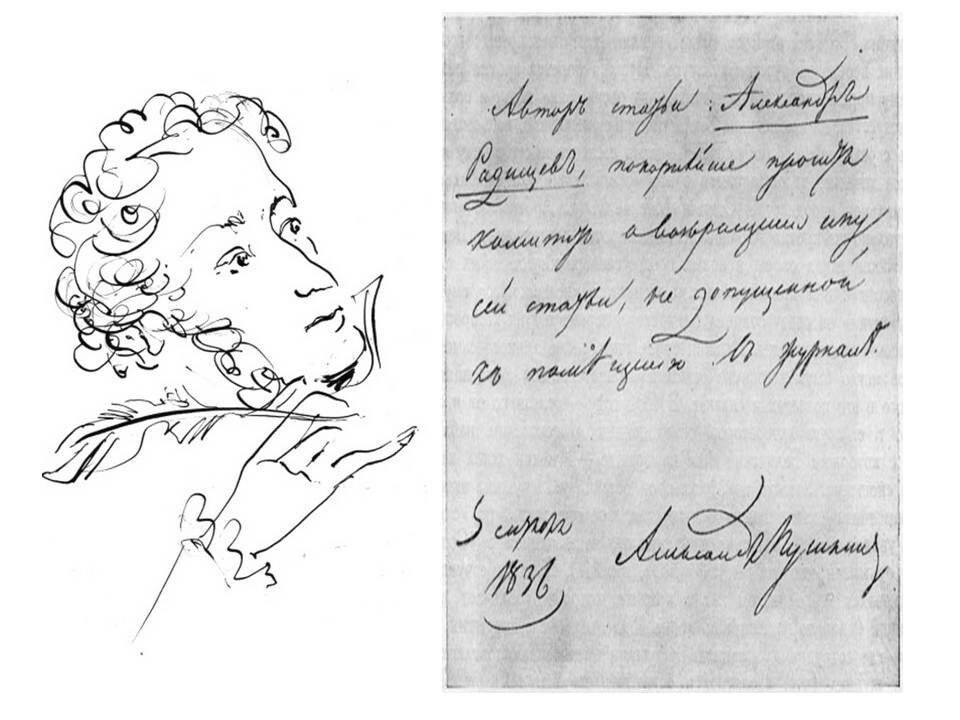 Авторъ статьи: Александръ
Радищевъ, покорнѣйше проситъ
комитетъ о возвращеніи ему
сей статьи, не допущенной
къ помѣщенію въ журналѣ.
5
1836
Александръ Пушкинъ